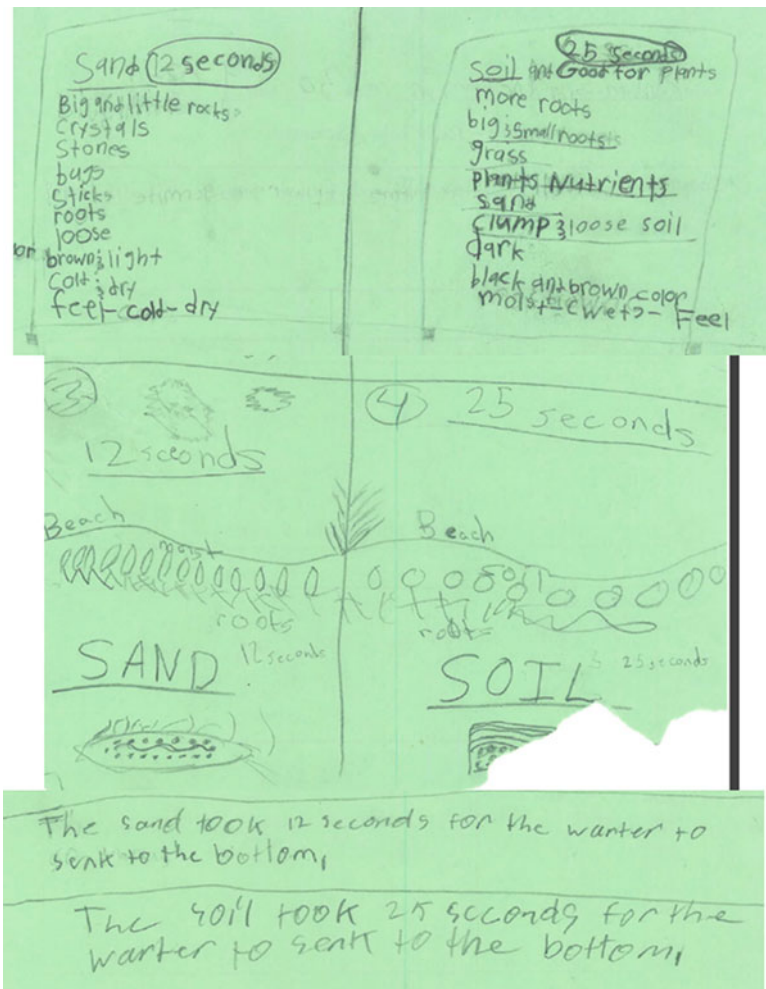 Sand 12 seconds
Big and little rocks
Crystals
Stones
bugs
Sticks
roots
loose
brown & light
Cold & dry
feel- cold- dry
25 seconds
Soil and Good for plants
more roots
big & small roots
grass
plants Nutrients
sand
clump & loose soil
dark
black and brown color
moist- (wet)- Feel
3
12 seconds
4 25 seconds
Beach
Beach
roots
roots
SAND 12 seconds
SOIL 25 seconds
The sand took 12 seconds for the warter to
senk to the bottom,
The soil took 25 seconds for the
warter to senk to the bottom,